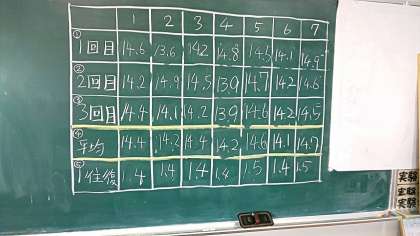 1 2 3 4 5 6 7
① 1回目 14.6 13.6 14.2 14.8 14.5 14.1 14.9
② 2回目 14.2 14.9 14.5 13.9 14.7 14.2 14.6
③ 3回目 14.4 14.1 14.2 13.9 14.6 14.2 14.5
④ 平均 14.4 14.2 14.4 14.2 14.6 14.1 14.7
⑤ 1往復 1.4 1.4 1.4 1.4 1.5 1.4 1.5
実験
実験
実験